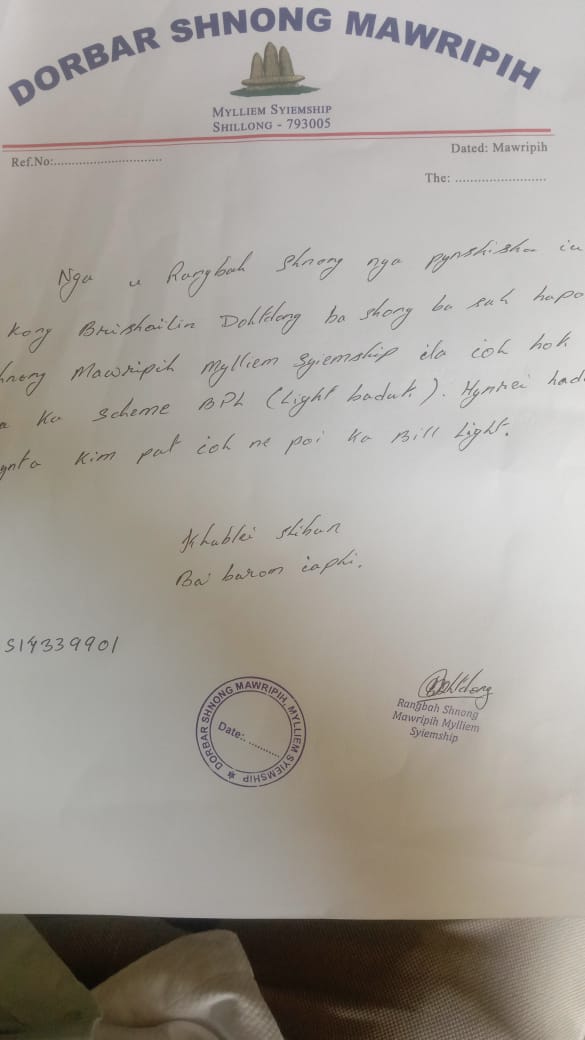 DORBAR SHNONG MAWRIPIH
MYLLIEM SYIEMSHIP
SHILLONG - 793005
Ref.No:..............................
Dated: Mawripih
The: ..........................
Nga u Rangbah Shnong nga pynshisha ia
Kong Brishailin Dohtdong ba shong ba sah hapo
hnong Mawripih Mylliem Syiemship ila ioh hok
a Ka Scheme BPL (Light baduk). Hynrei had
ynta kim pat ioh ne poi ka Bill Light.
Khublei shibun
Ba' barom iaphi.
S14339901
DORBAR SHNONG MAWRIPIH, MYLLIEM SYIEMSHIP
Date: ..........
Dohtdong
Rangbah Shnong
Mawripih Mylliem
Syiemship